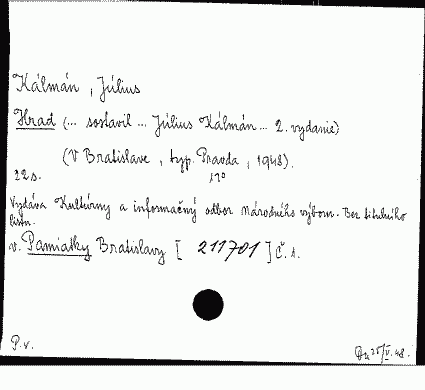 Kálmán, Július
Hrad (... sostavil ... Július Kálmán ... 2. vydanie)
(V Bratislave, typ. Pravda, 1948).
22 s. 17°
Vydáva Kultúrny a informačný odbor Národného výboru. Bez titulného
listu.
v. Pamiatky Bratislavy [ 211701 ] Č. 1.
P.v. 25/V.48.